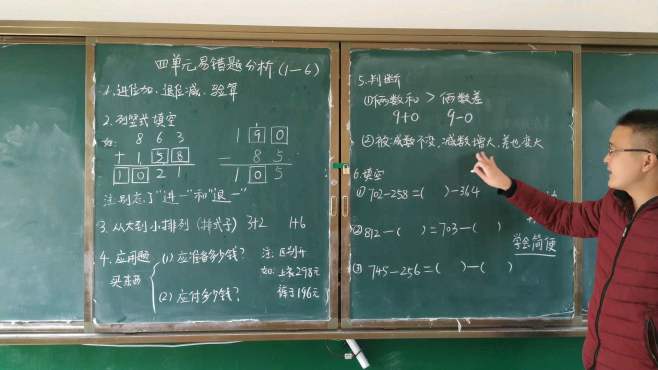 四单元易错题分析(1-6)
1.进位加、退位减、验算
2.列竖式填空
如: 8 6 3
+ 1 5 8
1 0 2 1
1 9 0
- 8 5
1 0 5
注:别忘了"进一"和"退一"
3.从大到小排列(排式子) 3+2 1+6
4.应用题
买东西
(1)应准备多少钱?
(2)应付多少钱?
注:区别好
如:上衣298元
裤子196元
5.判断
①俩数和 > 俩数差
9+0 9-0
②被减数不变,减数增大,差也变大
6.填空
①702-258=( )-364
②812-( )=703-( )
学会简便
③745-256=( )-( )